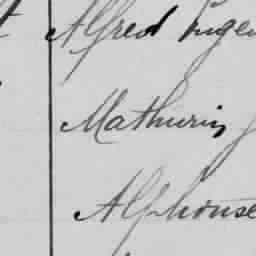 Alfred Eugen
Mathurin J
Alphonse